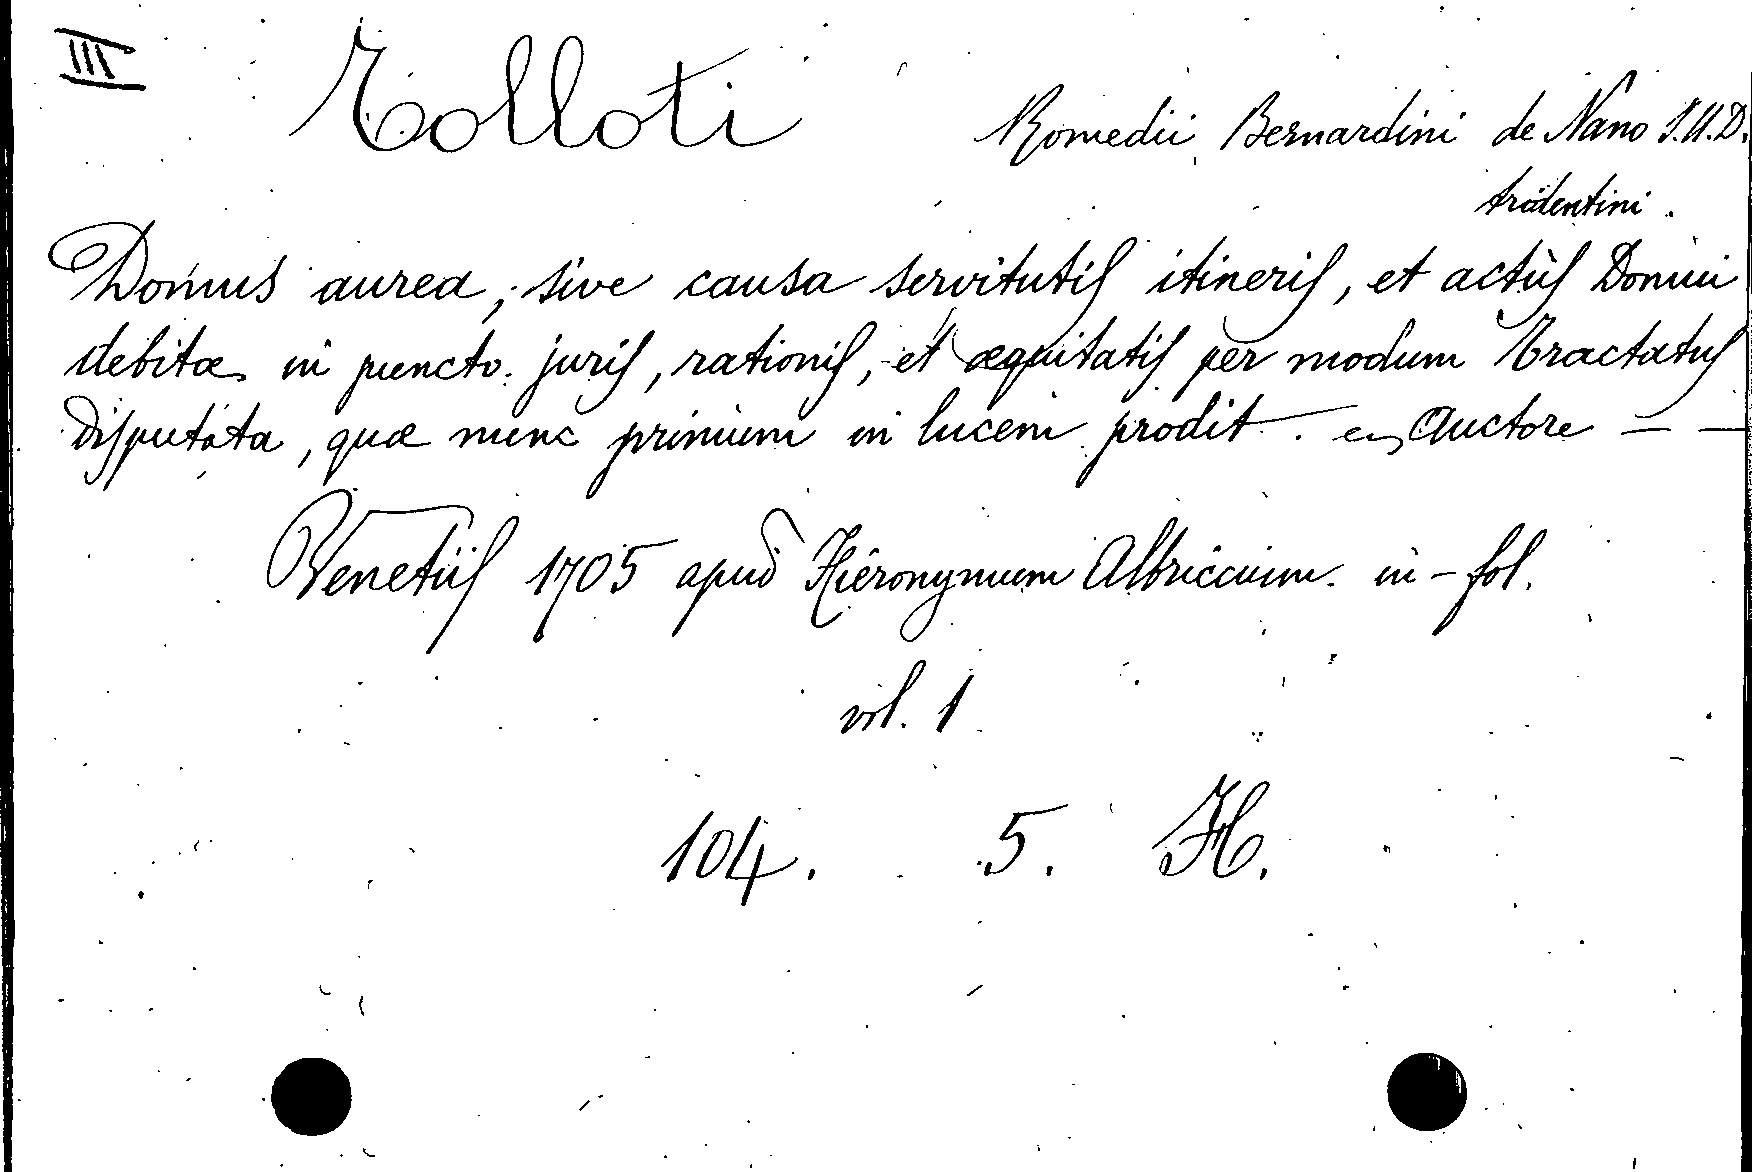 III
Tolloti Romedii Bernardini de Nano I.U.D.
tridentini.
Domus aurea, sive causa servitutis itineris, et actus Domui
debitæ in puncto juris, rationis, et æquitatis per modum Tractatus
disputata, quæ nunc primum in lucem prodit. en Auctore — —
Venetiis 1705 apud Hieronymum Albriccium. in-fol.
vol. 1
104. 5. H.